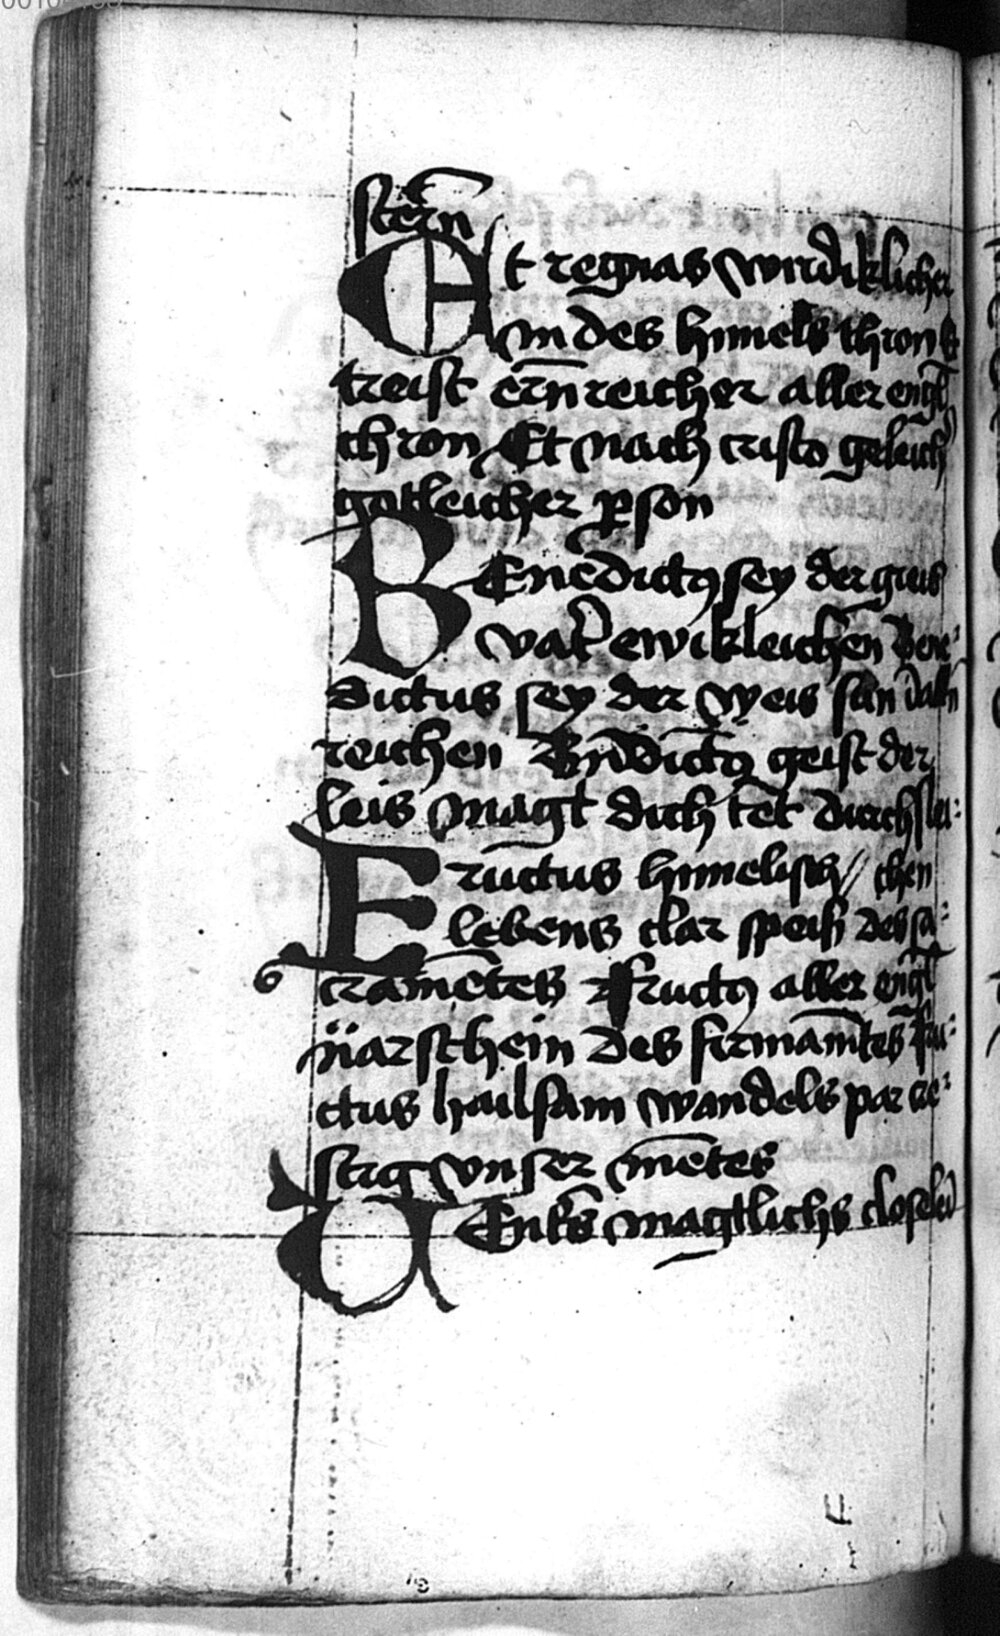 ster̄n
Et regnas wirdiklicher
in des himels thron
treist er̄nreicher aller engl
thron Et nach cristo geleich
gotleicher ꝑson
BEnedictꝯ sey der gues
vat̄ ewikleichen Bene⸗
dictus sey der weis sun
reichen Bn̄dictꝯ geist der
leis magt dich tet durchslei⸗
Fructus himelisch // chen
lebens clar speiß des sa⸗
cram̄etes Fructꝯ aller engl
narschein des firmam̄tes fru⸗
ctus hailsam wandels par
vnser m̄etes
magtlichs